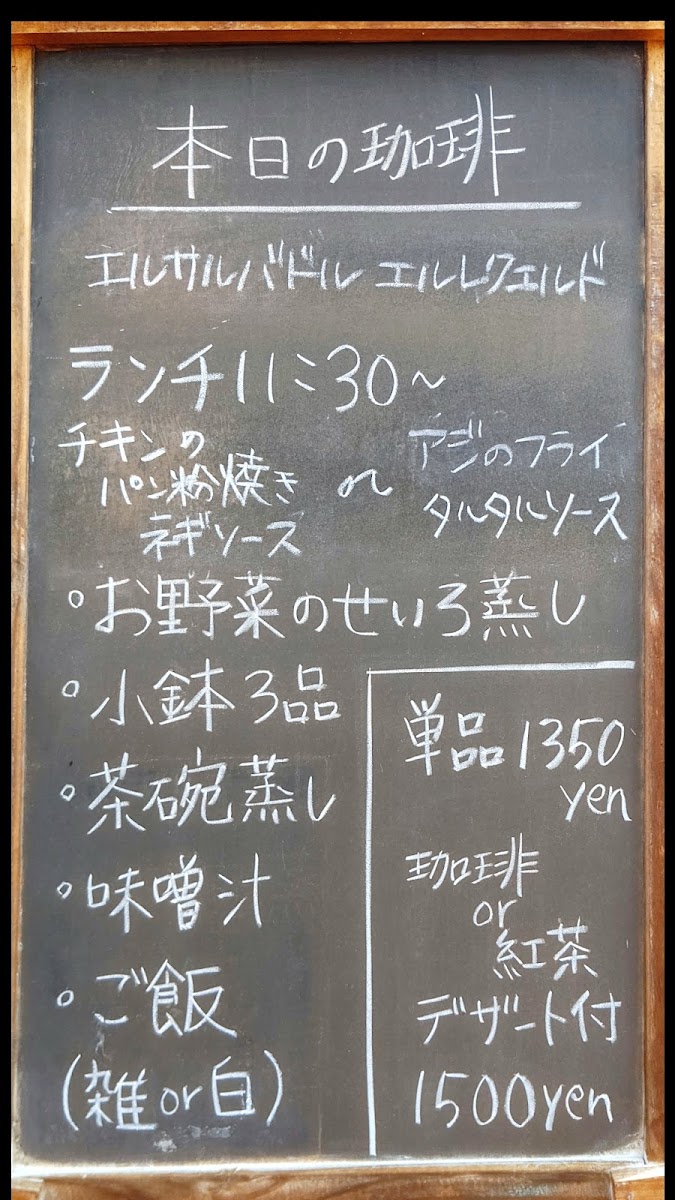 本日の珈琲
エルサルバドル エルレクエルド
ランチ11:30~
チキンの
パン粉焼き
ネギソース
or
アジのフライ
タルタルソース
。お野菜のせいろ蒸し
。小鉢3品
。茶碗蒸し
。味噌汁
。ご飯
(雑or白)
単品1350
yen
珈琲
or
紅茶
デザート付
1500yen